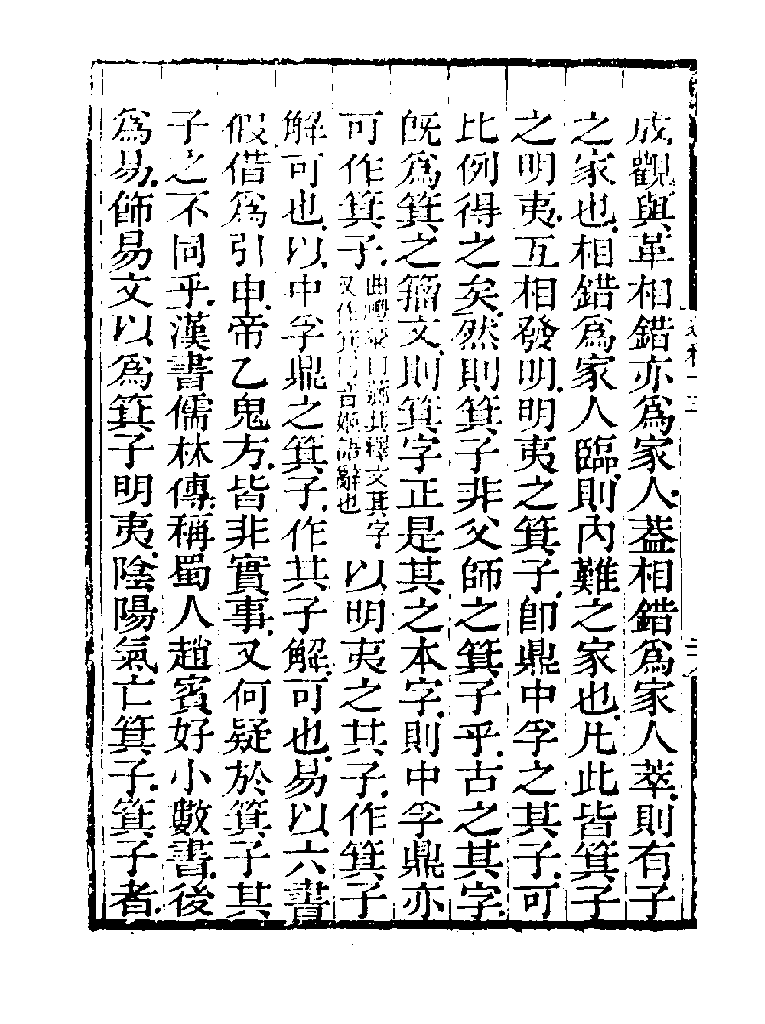 成觀與革相錯亦爲家人葢相錯爲家人萃則有子
之家也相錯爲家人臨則內難之家也凡此皆箕子
之明夷互相發明明夷之箕子卽鼎中孚之其子可
比例得之矣然則箕子非父師之箕子乎古之其字
旣爲箕之籒文則箕字正是其之本字則中孚鼎亦
可作箕子
曲禮梁曰薌其釋文其字
又作箕同音姬語辭也
以明夷之其子作箕子
解可也以中孚鼎之箕子作其子解可也易以六書
假借爲引申帝乙鬼方皆非實事又何疑於箕子其
子之不同乎漢書儒林傳稱蜀人趙賓好小數書後
爲易飾易文以爲箕子明夷陰陽氣亡箕子箕子者